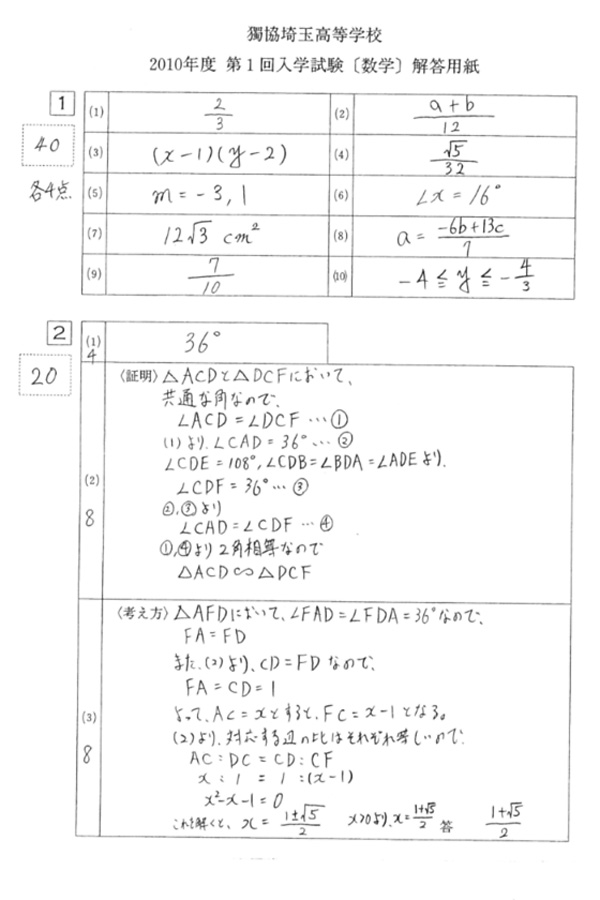 獨協埼玉高等学校
2010年度 第1回入学試験〔数学〕解答用紙
1
40
各4点
(1) 2/3
(2) (a+b)/12
(3) (x-1)(y-2)
(4) √5/32
(5) m=-3,1
(6) ∠x=16°
(7) 12√3 cm²
(8) a=(-6b+13c)/7
(9) 7/10
(10) -4≦y≦-4/3
2
20
(1) 4 36°
(2) 8
〈証明〉△ACDと△DCFにおいて、
共通な角なので、
∠ACD=∠DCF…①
(1)より、∠CAD=36°…②
∠CDE=108°,∠CDB=∠BDA=∠ADEより、
∠CDF=36°…③
②,③より
∠CAD=∠CDF…④
①,④より2角相等なので
△ACD∽△DCF
(3) 8
〈考え方〉△AFDにおいて、∠FAD=∠FDA=36°なので、
FA=FD
また、(2)より、CD=FDなので、
FA=CD=1
よって、AC=xとすると、FC=x-1となる。
(2)より、対応する辺の比はそれぞれ等しいので、
AC:DC=CD:CF
x:1=1:(x-1)
x²-x-1=0
これを解くと、x=(1±√5)/2 x>0より、x=(1+√5)/2 答 (1+√5)/2